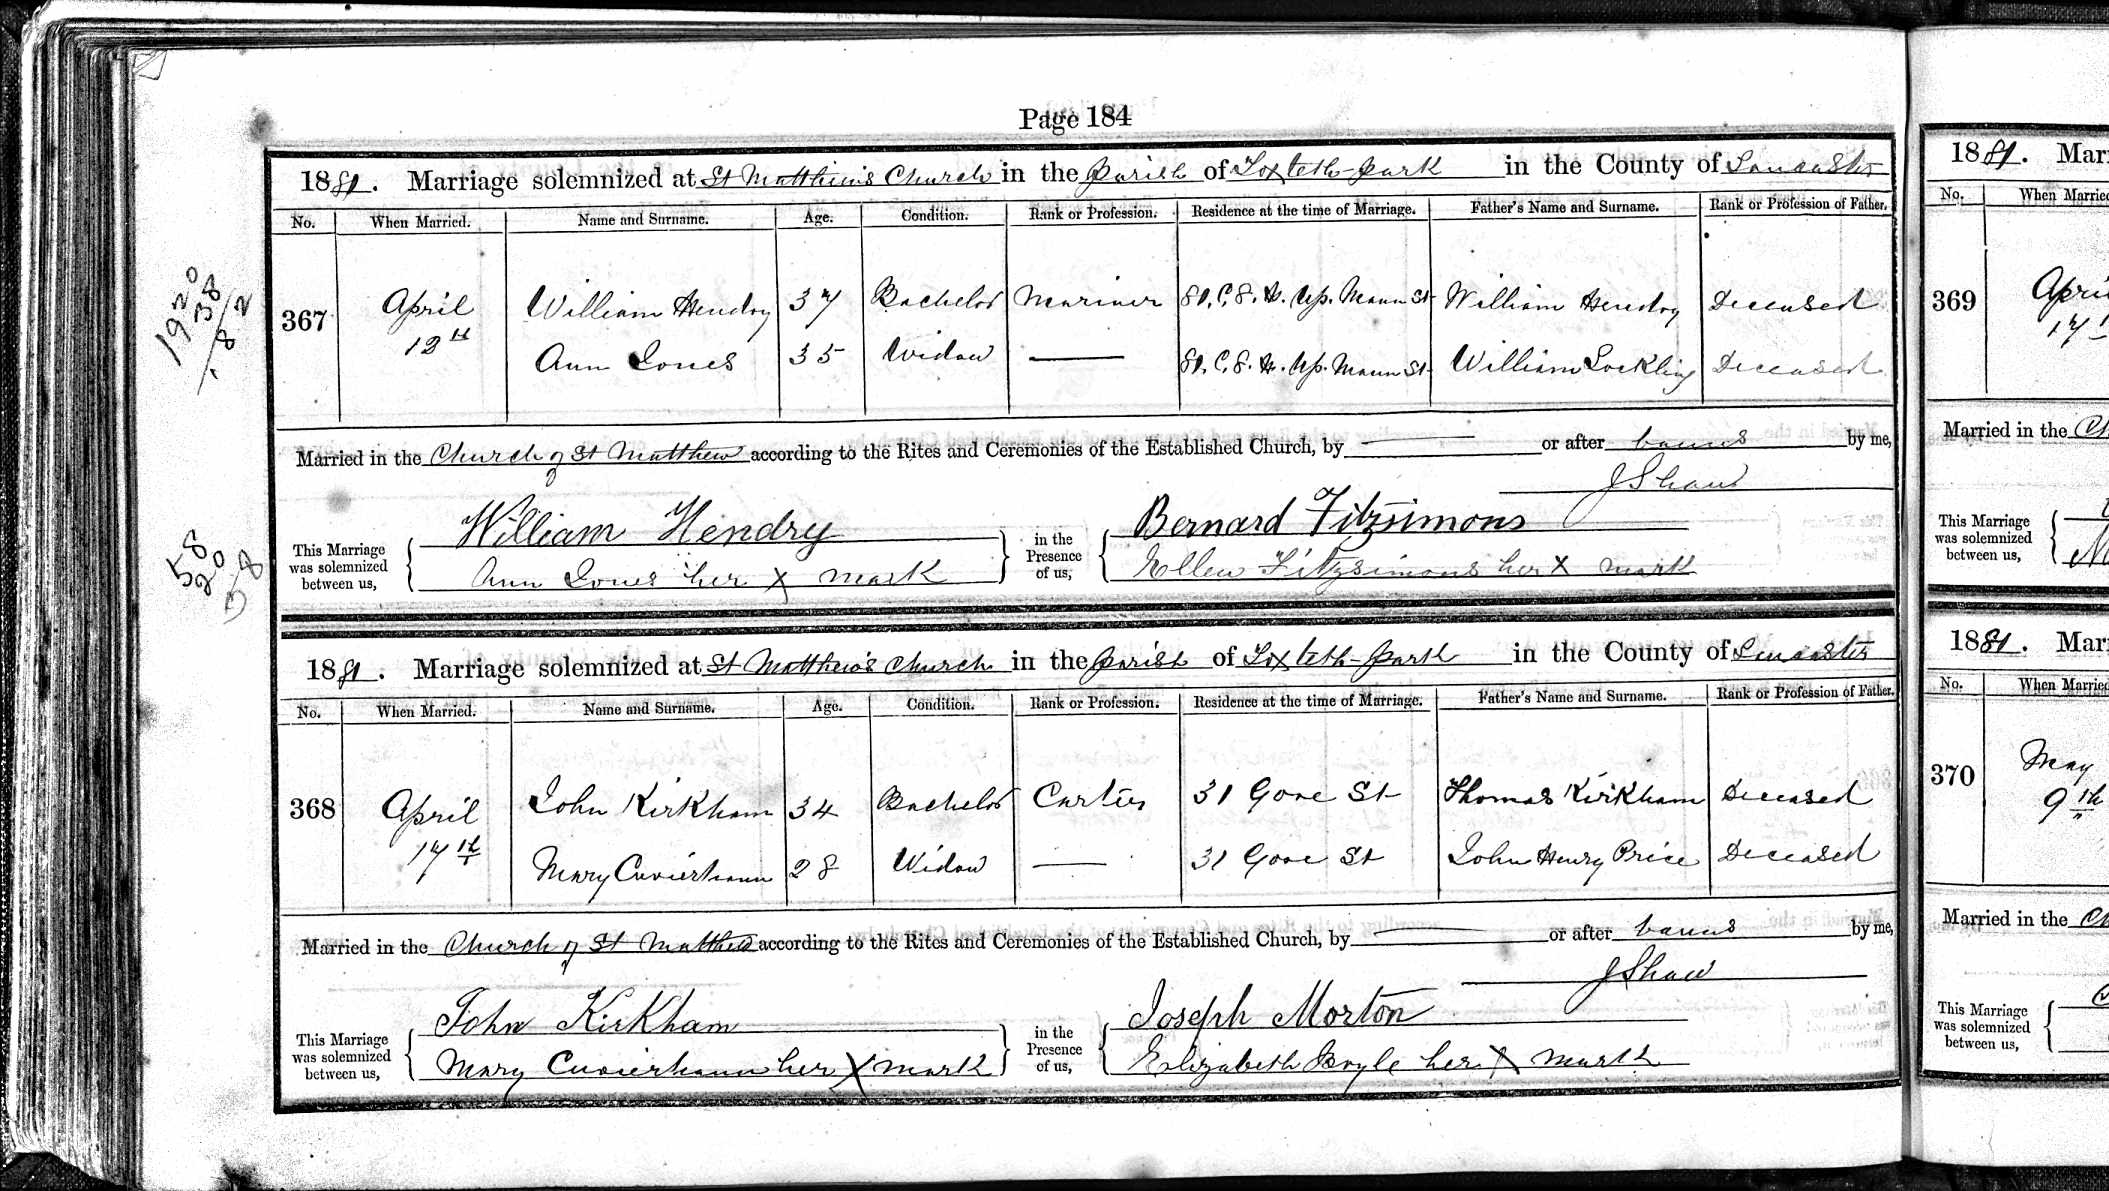 Page 184
1881. Marriage solemnized at St Matthew's Church in the Parish of Toxteth-Park in the County of Lancaster
No. When Married. Name and Surname. Age. Condition. Rank or Profession. Residence at the time of Marriage. Father's Name and Surname. Rank or Profession of Father.
367 April 12th William Hendry 37 Bachelor Mariner 81. C. 8. H. Up. Mann St William Hendry Deceased
Ann Jones 35 Widow 81. C. 8. H. Up. Mann St William Lockling Deceased
Married in the Church of St Matthew according to the Rites and Ceremonies of the Established Church, by or after banns by me,
J Shaw
This Marriage was solemnized between us, William Hendry
Ann Jones her X mark
in the Presence of us, Bernard Fitzsimons
Ellen Fitzsimons her X mark
1881. Marriage solemnized at St Matthew's Church in the Parish of Toxteth-Park in the County of Lancaster
No. When Married. Name and Surname. Age. Condition. Rank or Profession. Residence at the time of Marriage. Father's Name and Surname. Rank or Profession of Father.
368 April 17th John Kirkham 34 Bachelor Carter 31 Gore St Thomas Kirkham Deceased
Mary 28 Widow 31 Gore St John Henry Price Deceased
Married in the Church of St Matthew according to the Rites and Ceremonies of the Established Church, by or after banns by me,
J Shaw
This Marriage was solemnized between us, John Kirkham
Mary her X mark
in the Presence of us, Joseph Morton
Elizabeth Boyle her X mark
1920
38
58
20
38
1881. Mar
No. When Married
369 April
17
Married in the Ch
This Marriage was solemnized between us,
1881. Mar
No. When Married
370 May
9th
Married in the Ch
This Marriage was solemnized between us,